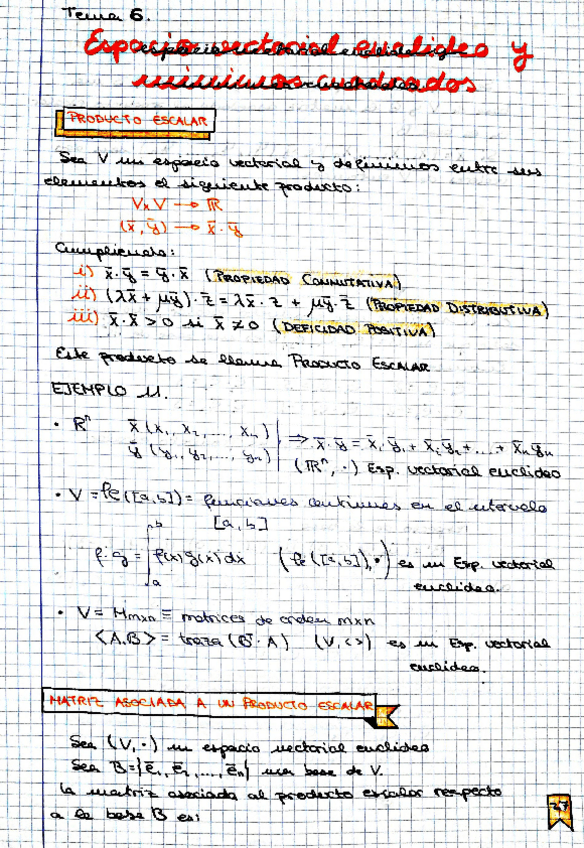 Tema 6.
Espacio vectorial euclideo y
minimos cuadrados
PRODUCTO ESCALAR
Sea V un espacio vectorial y definimos entre sus
elementos el siguiente producto:
VxV → ℝ
(x̄, ȳ) → x̄·ȳ
Cumpliendo:
i) x̄·ȳ = ȳ·x̄ (PROPIEDAD CONMUTATIVA)
ii) (λx̄ + μȳ)·z̄ = λx̄·z̄ + μȳ·z̄ (PROPIEDAD DISTRIBUTIVA)
iii) x̄·x̄ > 0 si x̄ ≠ 0 (DEFICIDAD POSITIVA)
Este producto se llama PRODUCTO ESCALAR
EJEMPLO 11.
• ℝⁿ x̄ (x₁, x₂, ..., xₙ)
ȳ (y₁, y₂, ..., yₙ) ⇒ x̄·ȳ = x̄₁ȳ₁ + x̄₂ȳ₂ + ... + x̄ₙȳₙ
(ℝⁿ, ·) Esp. vectorial euclideo
• V = fe([a,b]) = funciones continues en el intervalo
[a,b]
f·g = ∫ₐᵇ f(x)g(x)dx (fe([a,b]),•) es un Esp. vectorial
euclideo.
• V = Mmxn ≡ matrices de orden mxn
<A,B> = traza (Bᵗ·A) (V,<>) es un Esp. vectorial
euclideo.
MATRIZ ASOCIADA A UN PRODUCTO ESCALAR
Sea (V,·) un espacio vectorial euclideo
Sea B={ē₁, ē₂, ..., ēₙ} una base de V.
la matriz asociada al producto escalar respecto
a la base B es:
27